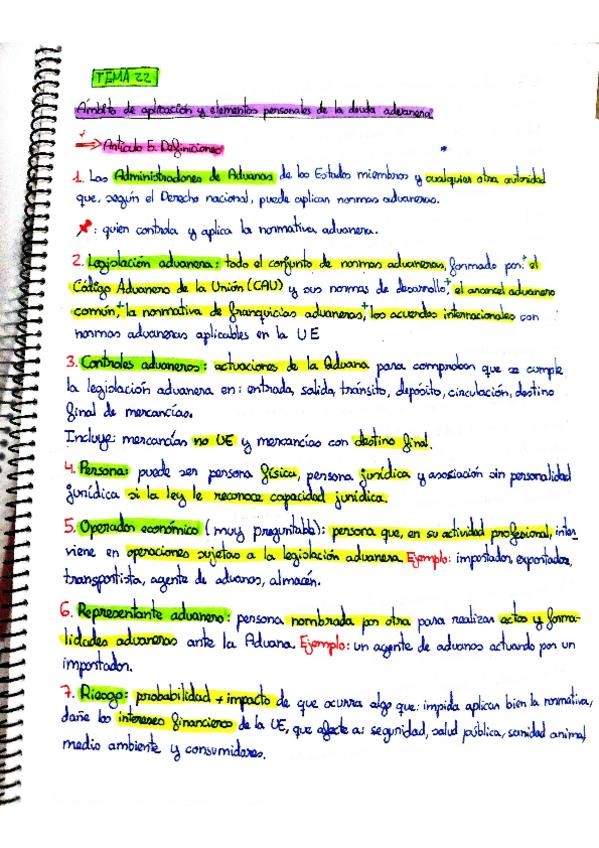 TEMA 22
Ámbito de aplicación y elementos personales de la deuda aduanera
Artículo 5. Definiciones
1. Las Administraciones de Aduanas de los Estados miembros y cualquier otra autoridad
que, según el Derecho nacional, puede aplicar normas aduaneras.
: quien controla y aplica la normativa aduanera.
2. Legislación aduanera: todo el conjunto de normas aduaneras, formado por: + el
Código Aduanero de la Unión (CAU) y sus normas de desarrollo, + el arancel aduanero
común, + la normativa de franquicias aduaneras, + los acuerdos internacionales con
normas aduaneras aplicables en la UE
3. Controles aduaneros: actuaciones de la Aduana para comprobar que se cumple
la legislación aduanera en: entrada, salida, tránsito, depósito, circulación, destino
final de mercancías.
Incluye: mercancías no UE y mercancías con destino final.
4. Persona: puede ser persona física, persona jurídica y asociación sin personalidad
jurídica si la ley le reconoce capacidad jurídica.
5. Operador económico (muy preguntable): persona que, en su actividad profesional, inter_
viene en operaciones sujetas a la legislación aduanera. Ejemplo: importador, exportador,
transportista, agente de aduanas, almacén.
6. Representante aduanero: persona nombrada por otra para realizar actos y forma-
lidades aduaneras ante la Aduana. Ejemplo: un agente de aduanas actuando por un
importador.
7. Riesgo: probabilidad + impacto de que ocurra algo que: impida aplicar bien la normativa,
dañe los intereses financieros de la UE, que afecte a: seguridad, salud pública, sanidad animal,
medio ambiente y consumidores.